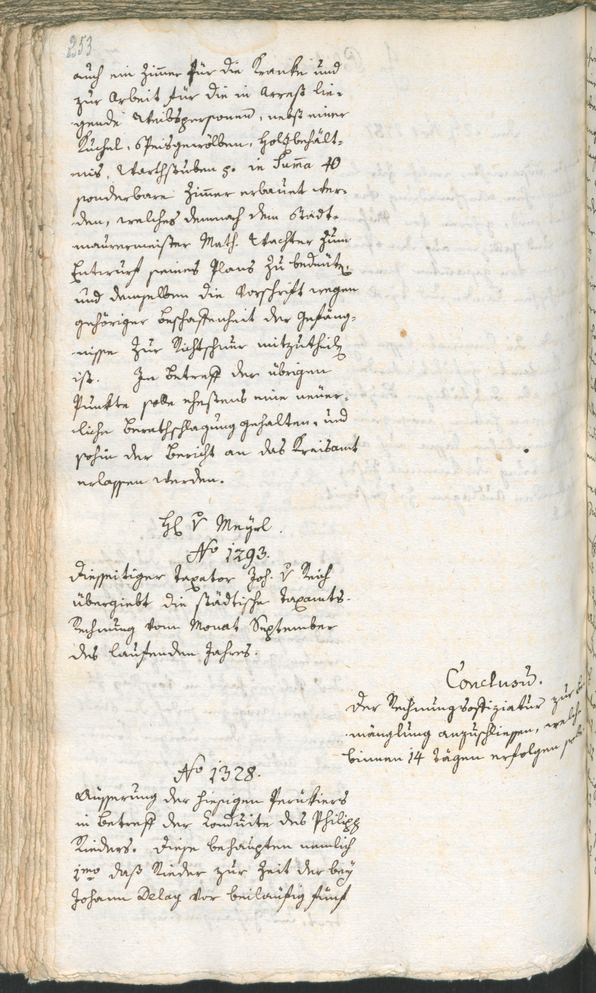 253
auch ein Zimmer für die Kranke und
zur Arbeit für die in Arrest lie-
gende Weibspersonen, nebst einer
Kuchel, Speisgewölben, Holzbehält-
nis, Warthstuben p. in Summa 40
sonderbare Zimmer erbauet wer-
den, welches demnach dem Stadt-
maurermeister Math. Wachter zum
Entwurf seines Plans zu bedeuten,
und demselben die Vorschrift wegen
gehöriger Beschaffenheit der Gefäng-
nisse zur Richtschnur mitzutheilen
ist. In Betreff der übrigen
Punkte solle ehestens eine neuer-
liche Berathschlagung gehalten, und
sohin der Bericht an das Kreisamt
erlassen werden.
H. v Meyrl.
No 1293.
Diesseitiger Taxator Joh. v Reich
übergiebt die städtische Taxamts-
Rechnung vom Monat September
des laufenden Jahres.
Conclusu.
Der Rechnungsoffiziatur zur
mänglung anzuschliessen, welche
binnen 14 Tägen erfolgen
No 1328.
Äusserung der hiesigen Perukiers
in Betreff der Konduite des Philipp
Rieders. Diese behaupten nemlich
1mo daß Rieder zur Zeit der bey
Johann Delay vor beiläufig fünf